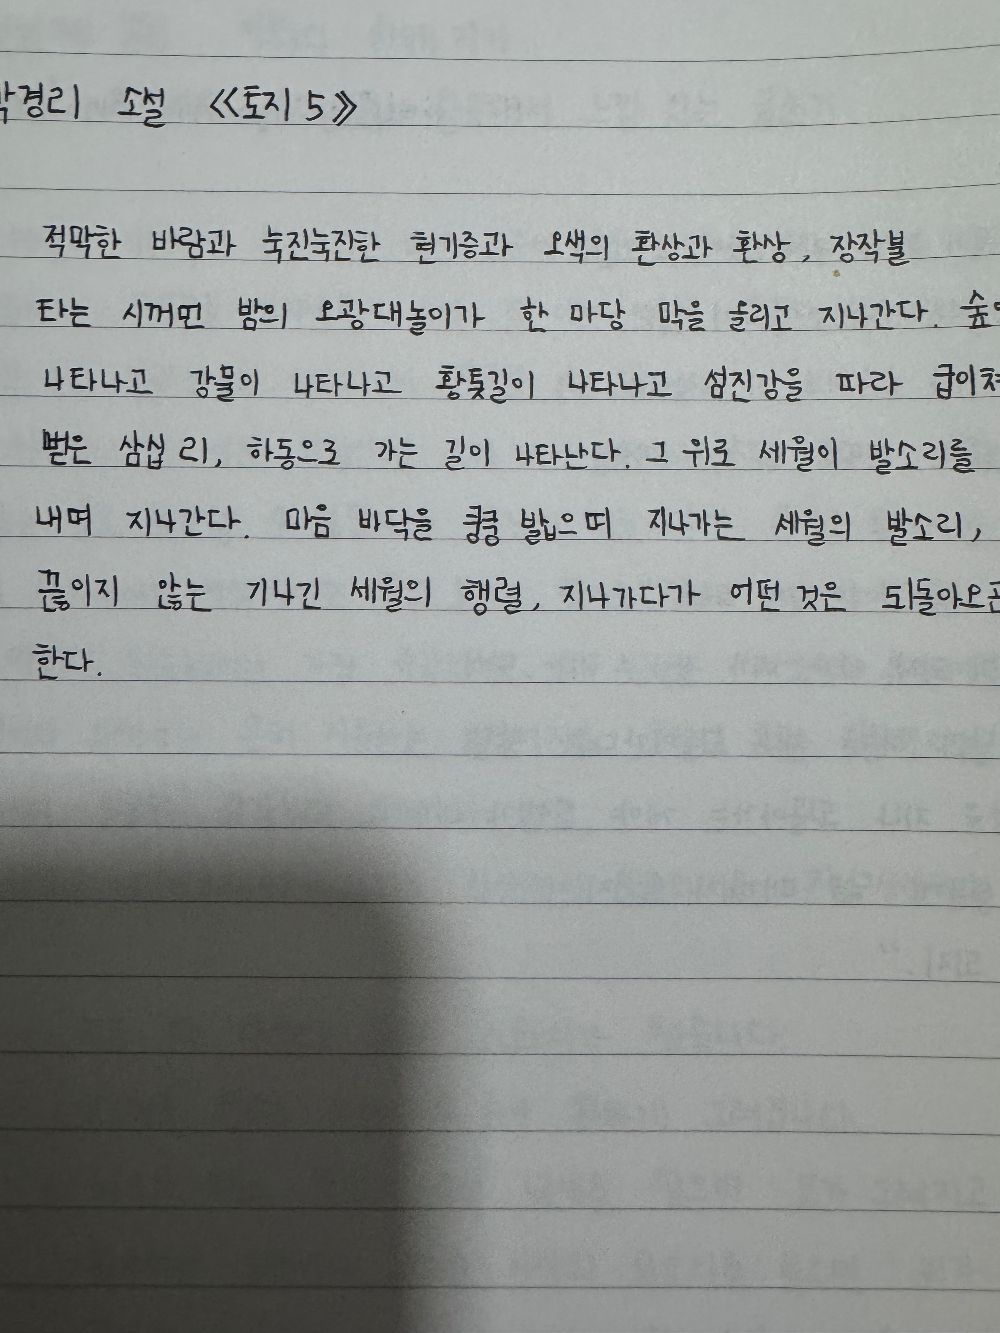 박경리 소설 《토지 5》
적막한 바람과 눅진눅진한 현기증과 오색의 환상과 환상, 장작불
타는 시꺼먼 밤의 오광대놀이가 한 마당 막을 올리고 지나간다. 숲이
나타나고 강물이 나타나고 황톳길이 나타나고 섬진강을 따라 굽이쳐
뻗은 삼십 리, 하동으로 가는 길이 나타난다. 그 위로 세월이 발소리를
내며 지나간다. 마음 바닥을 쿵쿵 밟으며 지나가는 세월의 발소리,
끊이지 않는 기나긴 세월의 행렬, 지나가다가 어떤 것은 되돌아오곤
한다.